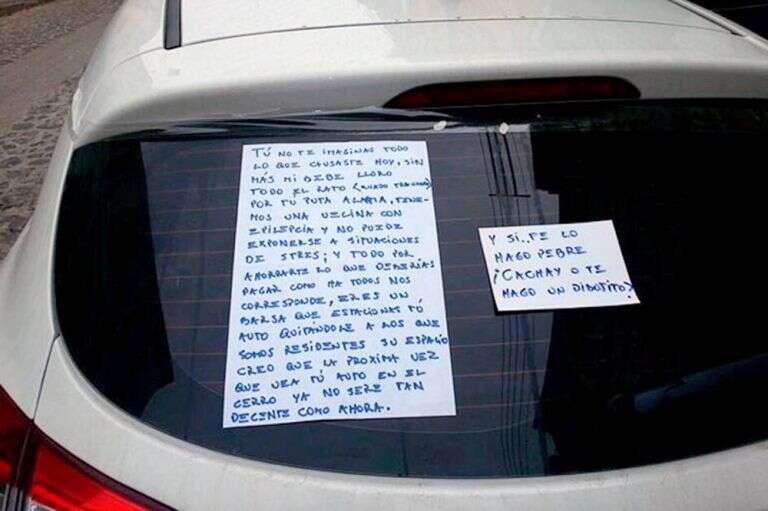 TÚ NO TE IMAGINAS TODO
LO QUE CAUSASTE HOY, SIN
MÁS MI BEBE LLORO
TODO EL RATO (
POR TU PUTA ALARMA, TENE-
MOS UNA VECINA CON
EPILEPCÍA Y NO PUEDE
EXPONERSE A SITUACIONES
DE STRES; Y TODO POR
AHORRARTE LO QUE DEBERÍAS
PAGAR COMO HA TODOS NOS
CORRESPONDE, ERES UN
BARSA QUE ESTACIONAS TÚ
AUTO QUITÁNDOLE A LOS QUE
SOMOS RESIDENTES SU ESPACIO
CREO QUE LA PROXIMA VEZ
QUE VEA TÚ AUTO EN EL
CERRO YA NO SERE TAN
DECENTE COMO AHORA.
Y SI..TE LO
HAGO PEBRE
¿CACHAY O TE
HAGO UN DIBUJITO?